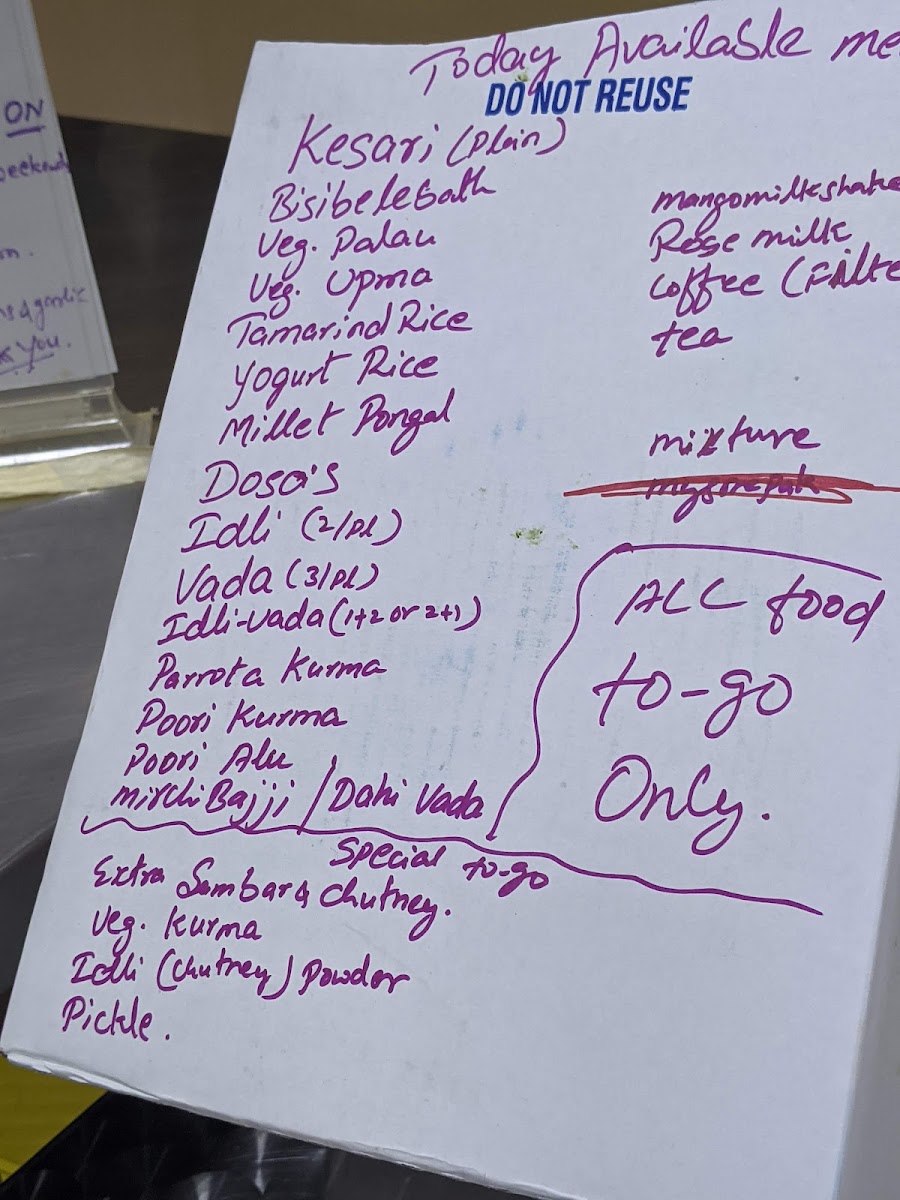 ON
weekend
on.
& garlic
YOU.
Today Available me
DO NOT REUSE
Kesari (plain)
Bisibelebath
Veg. Palau
Veg. Upma
Tamarind Rice
Yogurt Rice
Millet Pongal
Dosa's
Idli (2/pl)
Vada (3/pl)
Idli-vada (1+2 or 2+1)
Parrota Kurma
Poori Kurma
Poori Alu
mirchi Bajji / Dahi Vada
mangomilkshake
Rose milk
coffee (Filte
tea
mixture
mysorepak
ALL food
to-go
Only.
Special to-go
Extra Sambar & Chutney.
Veg. Kurma
Idli (Chutney) Powder
Pickle.